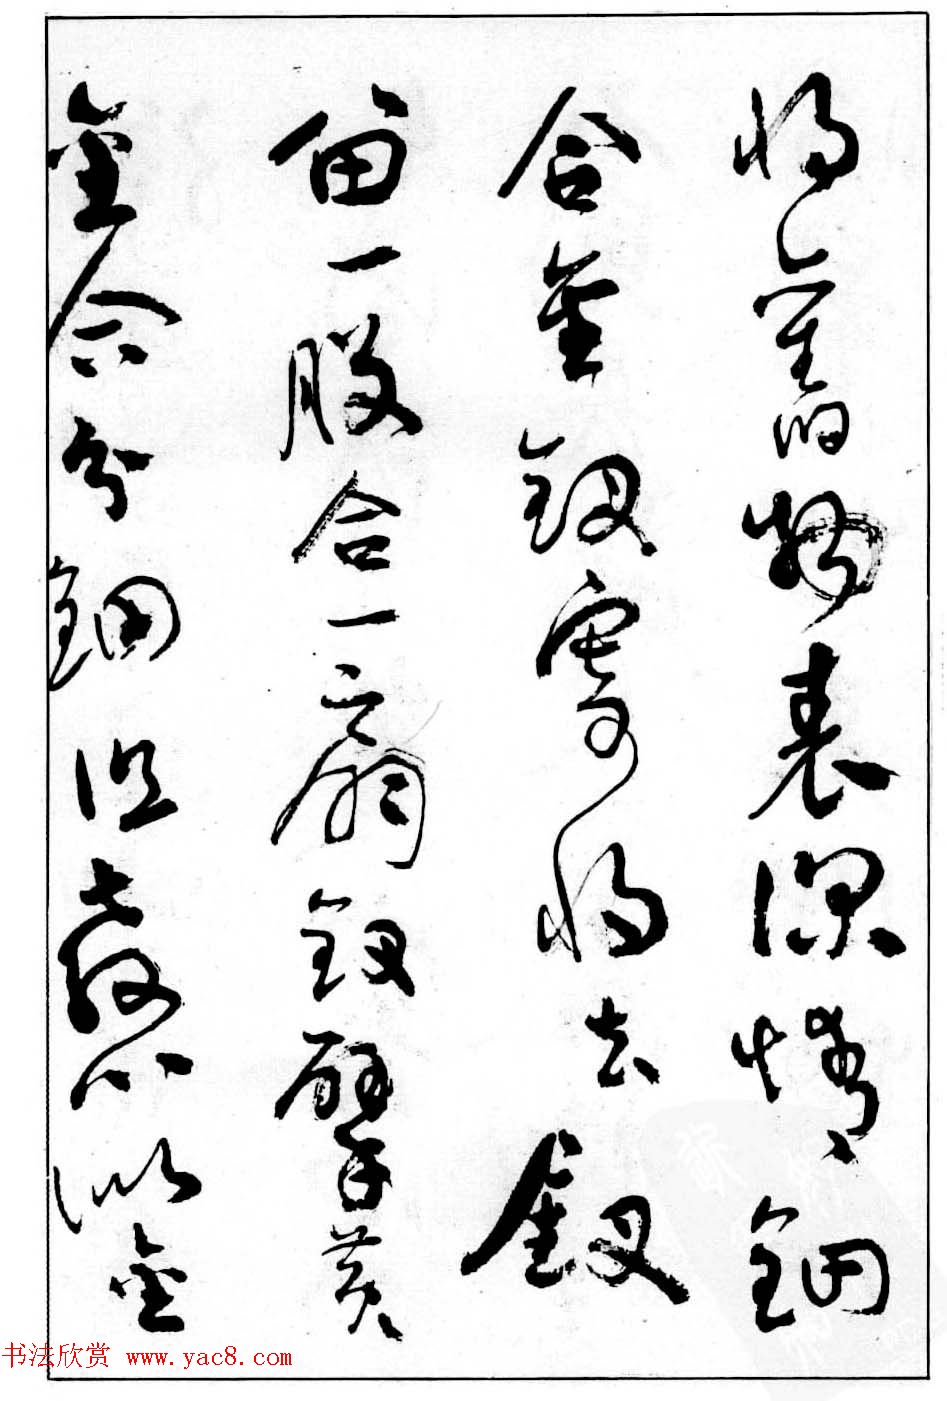 將舊物表深情鈿
合金釵寄將去釵
留一股合一扇釵擘黃
金合分鈿但教心似金
书法欣赏 www.yac8.com